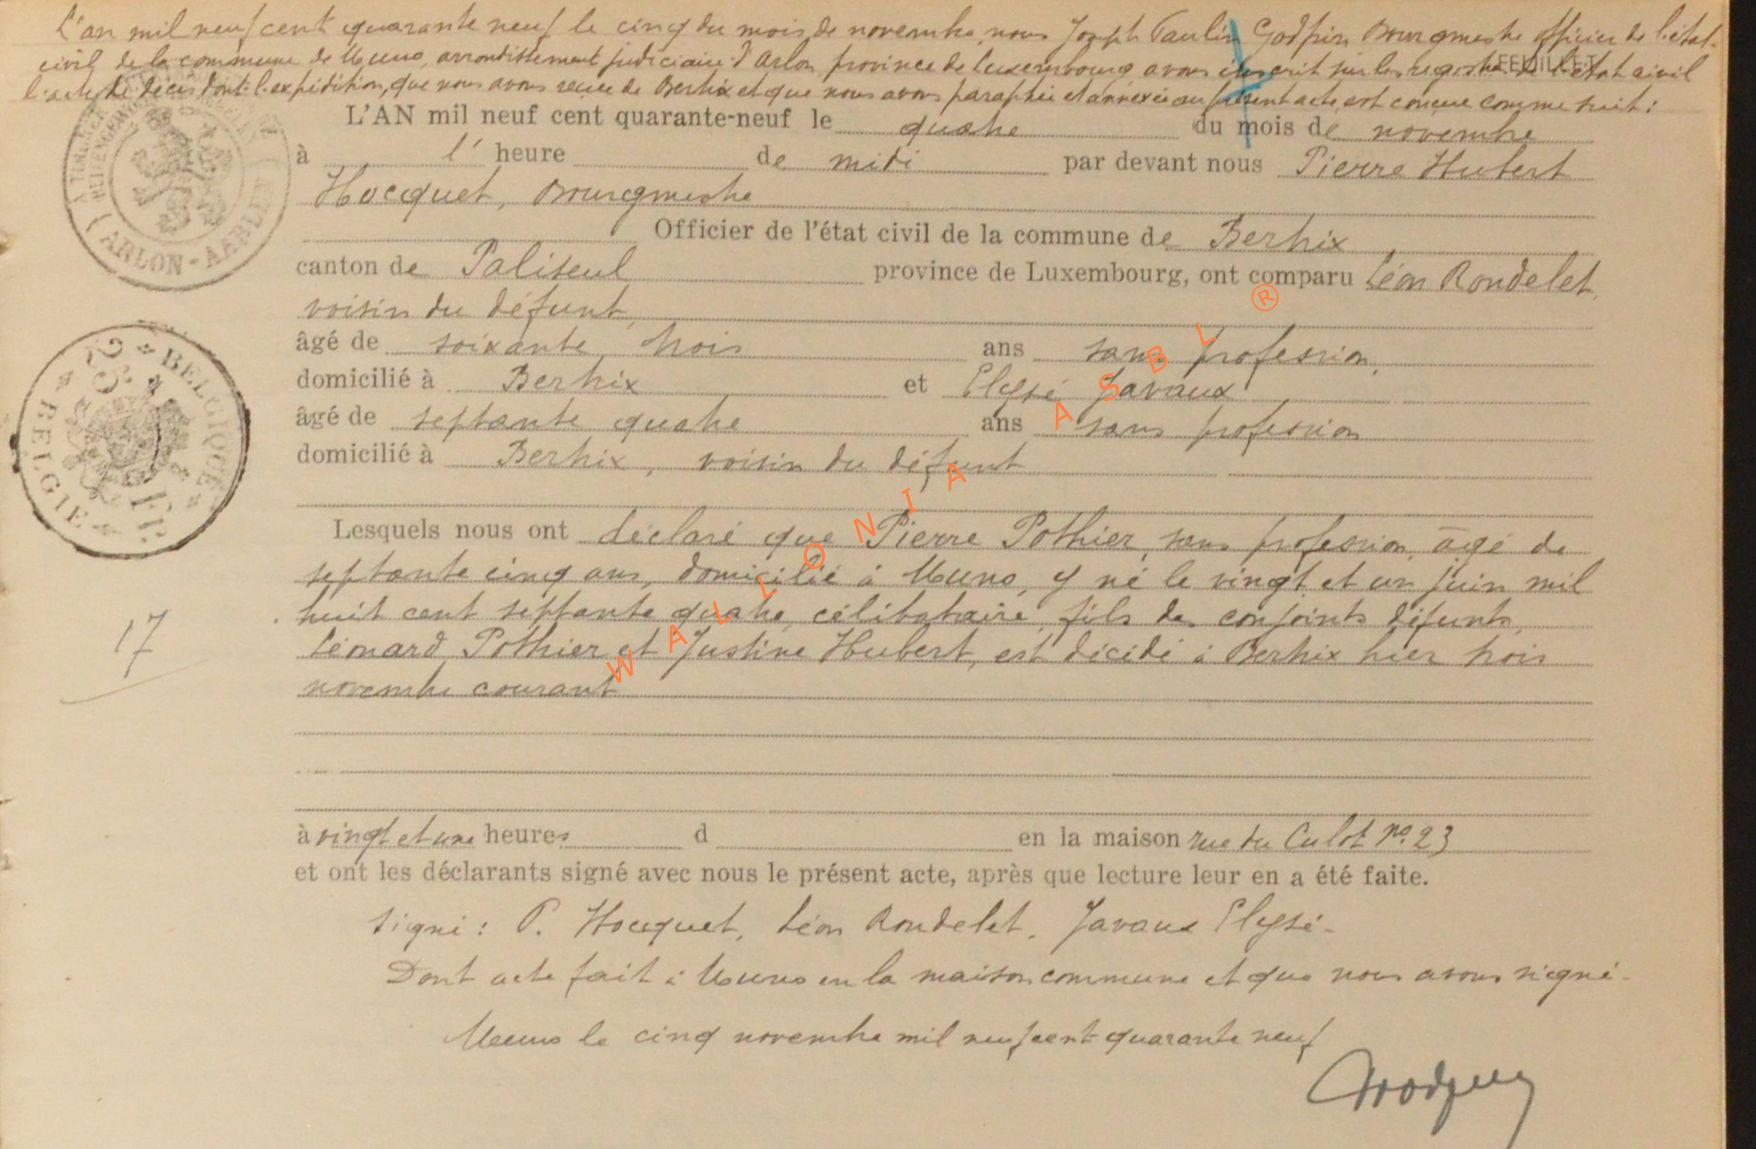 L'an mil neuf cent quarante neuf le cinq du mois de novembre, nous Joseph Paulin Godfrin Bourgmestre officier de l'état-
civil de la commune de Muno, arrondissement judiciaire d'Arlon province de Luxembourg avons inscrit sur les registres de l'état civil
l'acte de décès dont l'expédition, que nous avons reçue de Bertrix et que nous avons paraphée et annexée au présent acte est conçue comme suit:
FEUILLET
L'AN mil neuf cent quarante-neuf le quatre du mois de novembre
à l' heure de midi par devant nous Pierre Hubert
Hocquet, Bourgmestre
Officier de l'état civil de la commune de Bertrix
canton de Paliseul province de Luxembourg, ont comparu Léon Rondelet,
voisin du défunt,
âgé de soixante trois ans sans profession,
domicilié à Bertrix et Elysé Javaux
âgé de septante quatre ans sans profession
domicilié à Bertrix, voisin du défunt
Lesquels nous ont déclaré que Pierre Pothier, sans profession, âgé de
septante cinq ans, domicilié à Muno, y né le vingt et un juin mil
huit cent septante quatre, célibataire, fils des conjoints défunts,
Léonard Pothier et Justine Hubert, est décédé à Bertrix hier trois
novembre courant
17
à vingt et une heures d en la maison rue du Culot no. 23
et ont les déclarants signé avec nous le présent acte, après que lecture leur en a été faite.
Signé: P. Hocquet, Léon Rondelet, Javaux Elysé.
Dont acte fait à Muno en la maison commune et que nous avons signé.
Muno le cinq novembre mil neuf cent quarante neuf
ARLON-AARLEN
BELGIQUE
BELGIE
25 FR
WALLONIA ASBL ®